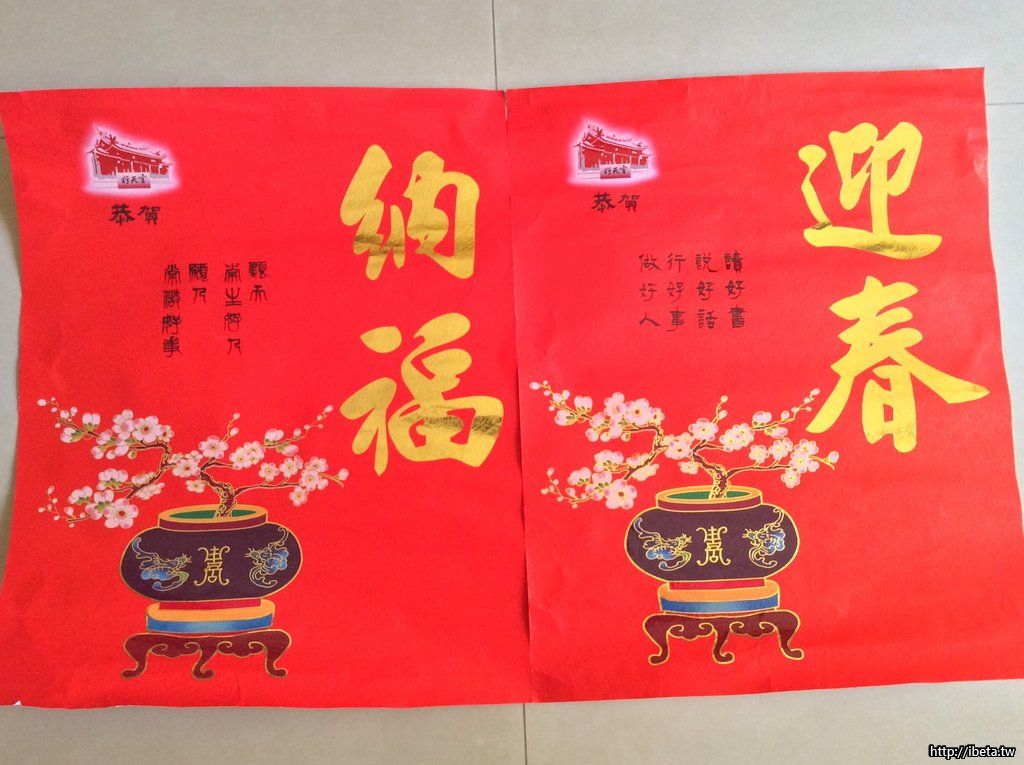 納福
行天宮
恭賀
願天
常生好人
願人
常做好事
迎春
行天宮
恭賀
讀好書
說好話
行好事
做好人
http://ibeta.tw